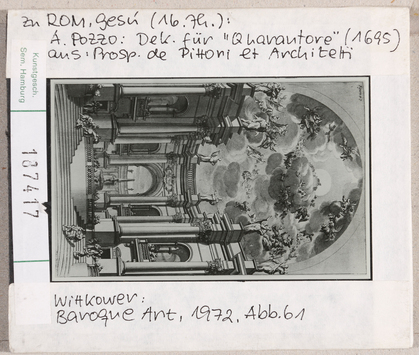 zu ROM, Gesú (16.Jh.):
A. Pozzo: Dek. für "Quarantore" (1695)
aus: Prosp. de Pittori et Architetti
Kunstgesch.
Sem. Hamburg
187417
Wittkower:
Baroque Art, 1972, Abb. 61